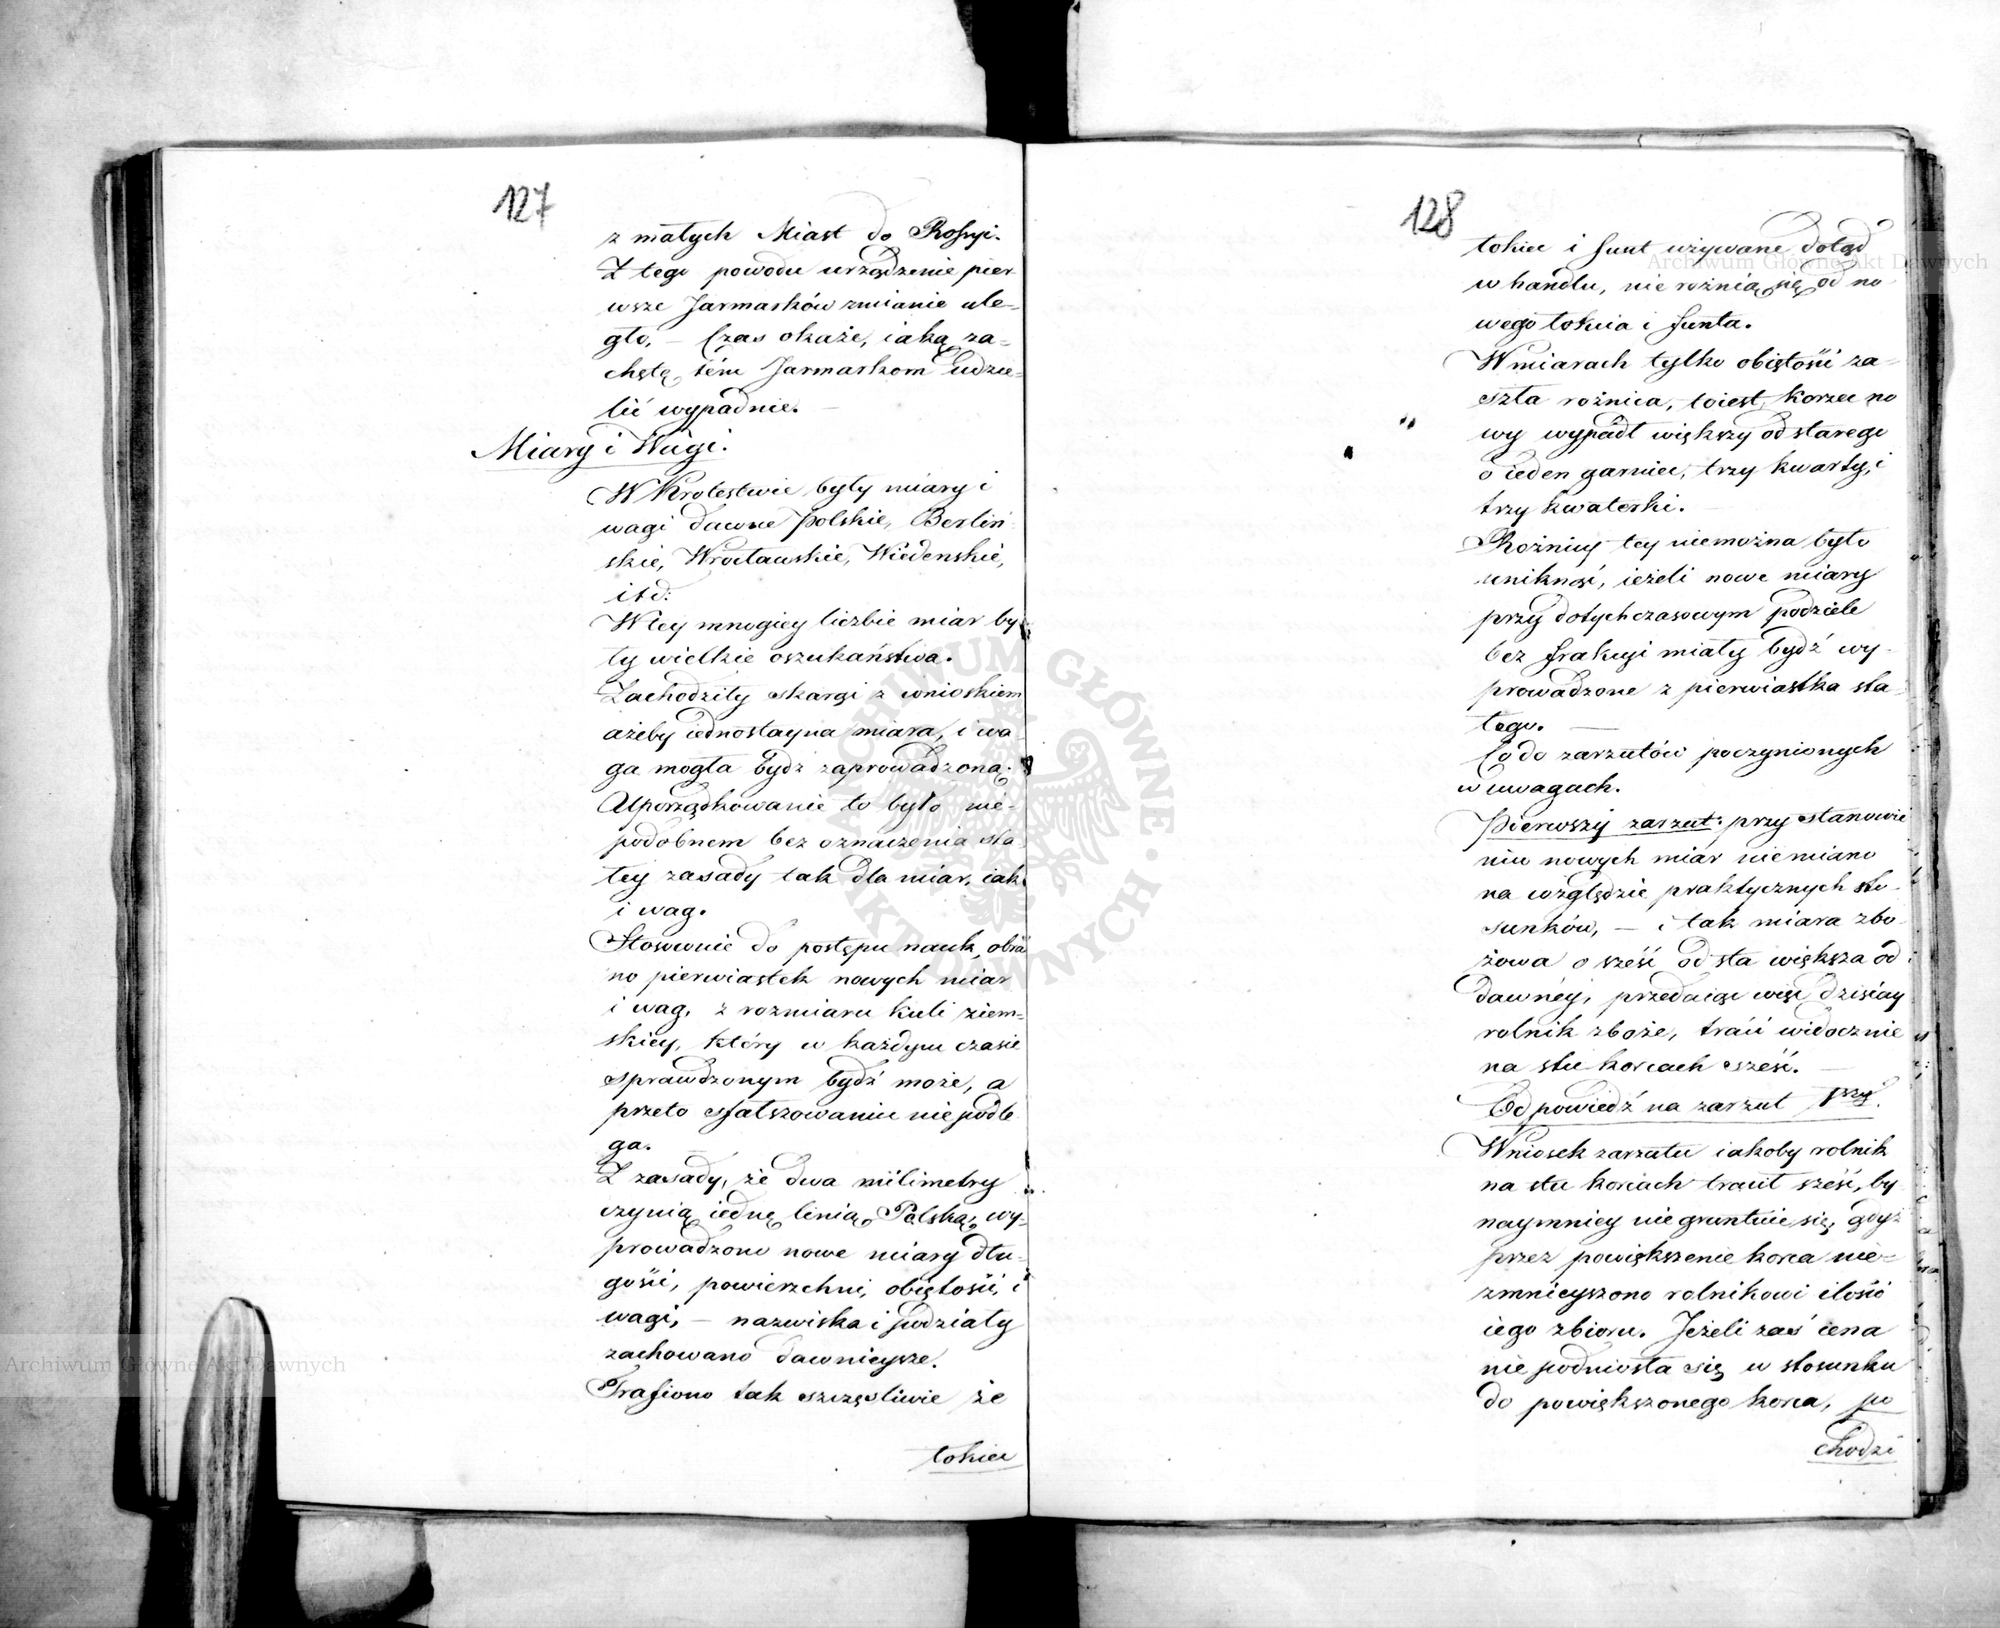 127
z małych Miast do Rossyi.
Z tego powodu urządzenie pier
wsze Jarmarków zmianie ule-
gło. – Czas okaże, iaką za-
chętę tém Jarmarkom udzie-
lić wypadnie. –
Miary i Wagi.
W Krolestwie były miary i
wagi dawne Polskie, Berliń
skie, Wrocławskie, Wiedenskie,
itd:
W tey mnogiey liczbie miar by
ły wielkie oszukaństwa.
Zachodziły skargi z wnioskiem
ażeby iednostayna miara, i wa
ga mogła bydź zaprowadzoną.
Uporządkowanie to było nie-
podobnem bez oznaczenia sta
łey zasady tak dla miar, iak
i wag.
Stosownie do postępu nauk, obra
no pierwiastek nowych miar
i wag, z rozmiaru kuli ziem-
skiey, który w każdym czasie
sprawdzonym bydź może, a
przeto sfałszowaniu niepodle
ga. –
Z zasady, że dwa milimetry
czynią iednę linią Polską, wy-
prowadzono nowe miary dłu-
gości, powierzchni, obiętości, i
wagi, – nazwiska i podziały
zachowano dawnieysze.
Trafiono tak szczęsliwie że
łokieć
128
łokieć i funt używane dotąd
w handlu, nie rożnią się od no
wego łokcia i funta.
W miarach tylko obiętości za-
szła rożnica, toiest, korzec no
wy wypadł większy od starego
o ieden garniec, trzy kwarty, i
trzy kwaterki. –
Rożnicy tey niemożna było
uniknąć, ieżeli nowe miary
przy dotychczasowym podziele
bez frakcyi miały bydź wy-
prowadzone z pierwiastka sta-
łego. –
Co do zarzutów poczynionych
w uwagach.
Pierwszy zarzut: przy stanowie
niu nowych miár niemiano
na względzie praktycznych sto-
sunków, – i tak miara zbo-
żowa o sześć od sta większa od
dawnéy, przedaiąc więc dzisiay
rolnik zboże, traci widocznie
na stu korcach sześć. –
Odpowiedź na zarzut 1wszy.
Wniosek zarzutu iakoby rolnik
na stu korcach tracił sześć, by
naymniey nie gruntuie się, gdyż
przez powiększenie korca nie-
zmnieyszono rolnikowi ilość
iego zbioru. Jeżeli zaś cena
nie podniosła się w stosunku
do powiększonego korca, po
chodzi
Archiwum Główne Akt Dawnych
Archiwum Główne Akt Dawnych
ARCHIWUM GŁÓWNE AKT DAWNYCH